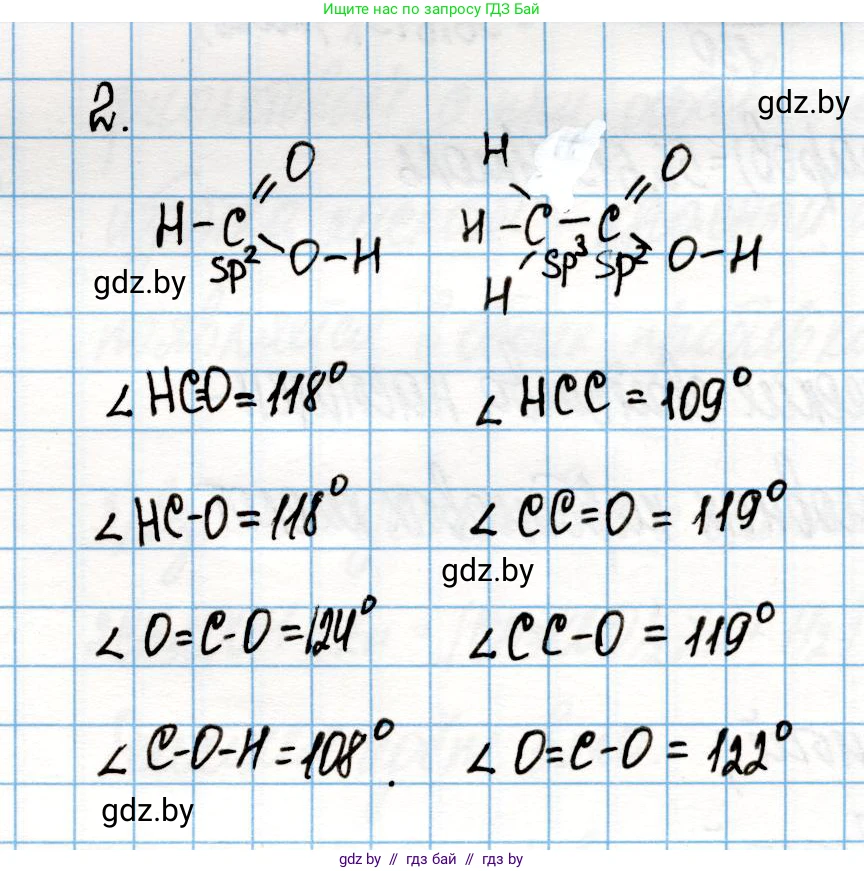 Ищите нас по запросу ГДЗ Бай
gdz.by
2.
H-C sp² =O -O-H
H H H C sp³ - C sp² =O -O-H
gdz.by
∠HC=O=118° ∠HCC=109°
∠HC-O=118° ∠CC=O=119°
gdz.by
∠O=C-O=124° ∠CC-O=119°
∠C-O-H=108°. ∠O=C-O=122°
gdz.by
gdz by // гдз бай // gdz by